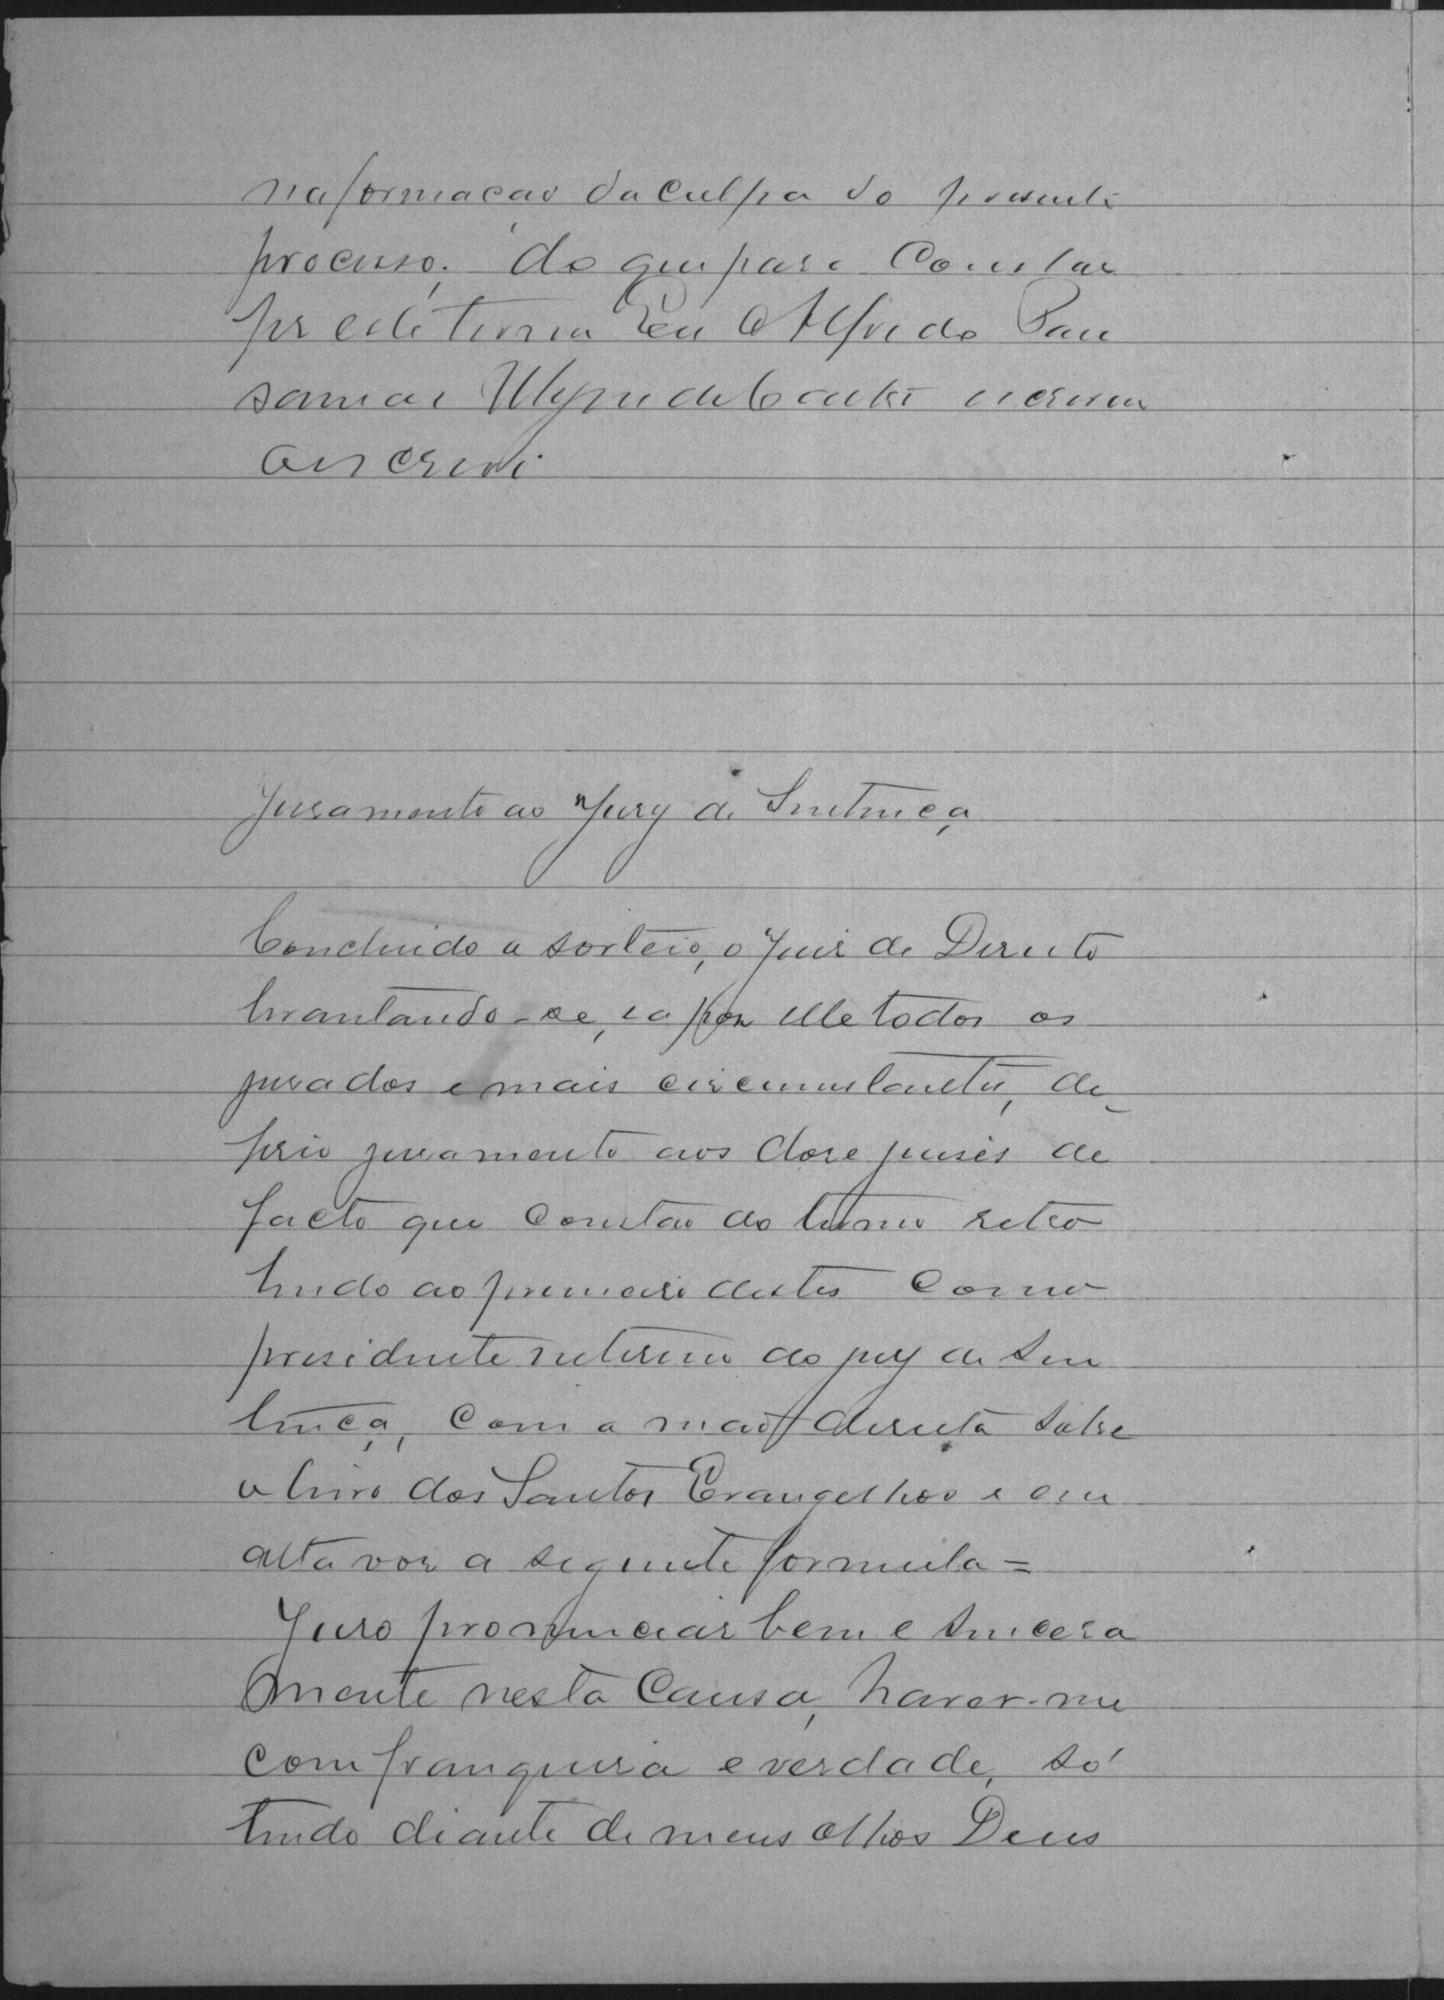 na formação da culpa do presente
processo, do que para constar
fiz este termo Eu Alfredo Pau
escrivão
o escrevi
Juramento ao Jury de Sentença
Concluido o sorteio, o Juiz de Direito
levantando-se, e a por elle todos os
jurados e mais circumstantes, de
frio juramento aos doze juises de
facto que constão do termo retro
lendo ao primeiro destes como
presidente interino do jury de Sen
tença, com a mão direita sobre
o livro dos Santos Evangelhos e em
alta voz a seguinte formula =
Juro pronunciar bem e sincera
mente nesta Causa, haver-me
com franqueza e verdade, só
tendo diante de meus olhos Deus